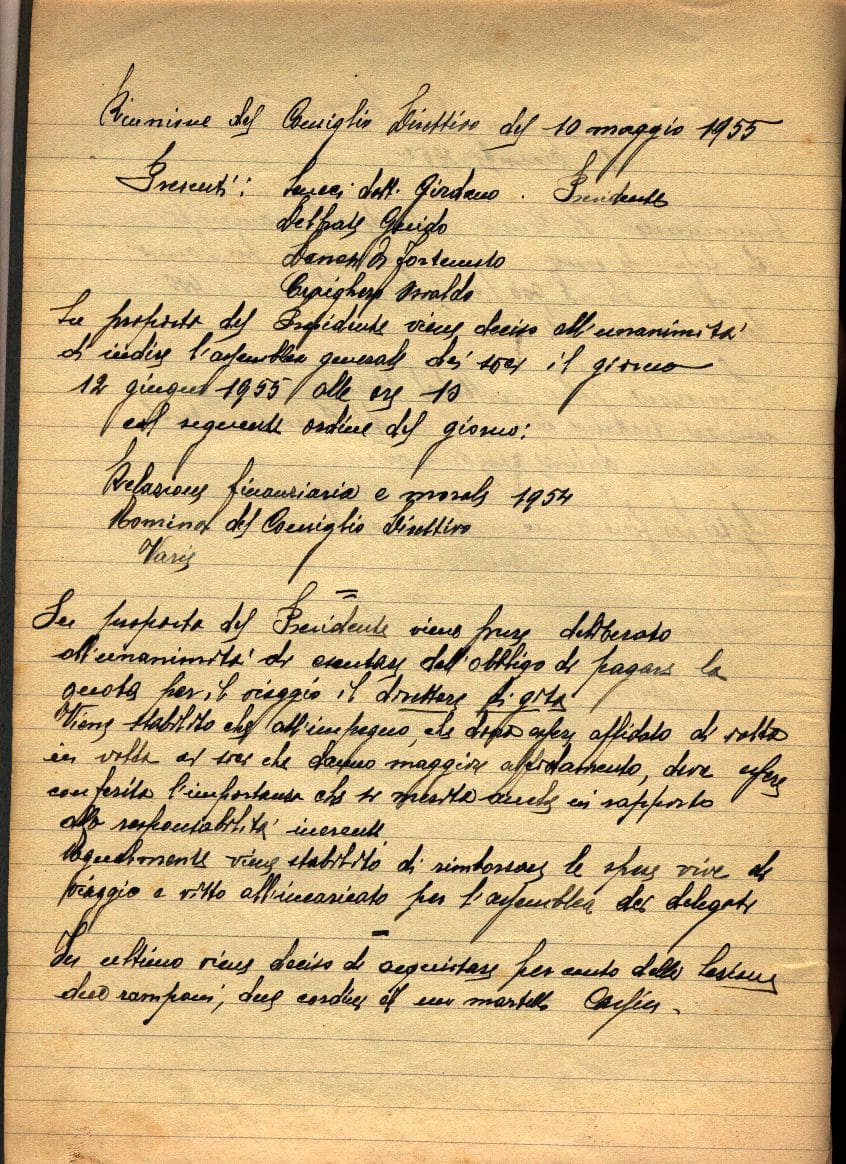 Riunione del Consiglio Direttivo del 10 maggio 1955
Presenti: dott. Girdano. Presidente
Delfrate Guido
Fortunato
Osvaldo
Su proposta del Presidente viene deciso all'unanimità
di indire l'assemblea generale dei soci il giorno
12 giugno 1955 alle ore 10
col seguente ordine del giorno:
Relazione finanziaria e morale 1954
Nomina del Consiglio Direttivo
Varie
=
Su proposta del Presidente viene pure deliberato
all'unanimità di esentare dall'obbligo di pagare la
quota per il viaggio il direttore di gita
Viene stabilito che all'impegno, che dopo essere affidato di volta
in volta ai soci che danno maggiore affidamento, deve essere
conferita l'importanza che si merita anche in rapporto
alla responsabilità inerente
Ugualmente viene stabilito di rimborsare le spese vive di
viaggio e vitto all'incaricato per l'assemblea dei delegati
=
In ultimo viene deciso di acquistare per conto della Sezione
due ramponi, due cordini ed un martello Cassin.